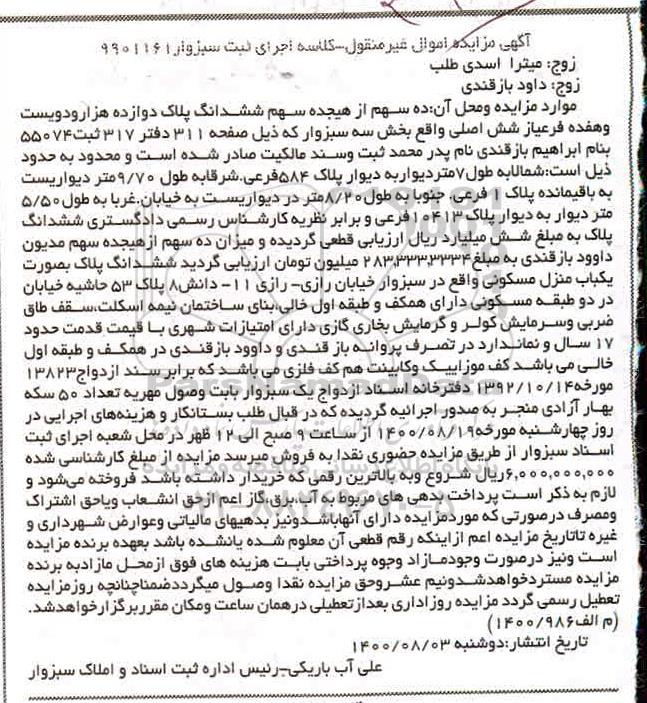 آگهی مزایده اموال غیرمنقول-کلاسه اجرای ثبت سبزوار۹۹۰۱۱۶۱
زوج: میترا اسدی طلب
زوج: داود بازقندی
موارد مزایده ومحل آن:ده سهم از هیجده سهم ششدانگ پلاک دوازده هزارودویست
وهفده فرعیاز شش اصلی واقع بخش سه سبزوار که ذیل صفحه ۳۱۱ دفتر ۳۱۷ ثبت۵۵۰۷۴
بنام ابراهیم بازقندی نام پدر محمد ثبت وسند مالکیت صادر شده است و محدود به حدود
ذیل است:شمالابه طول۷متردیواربه دیوار پلاک ۵۸۴فرعی.شرقابه طول ۹/۷۰متر دیواریست
به باقیمانده پلاک ۱ فرعی. جنوبا به طول۸/۲۰متر در دیواریست به خیابان.غربا به طول۵/۵۰
متر دیوار به دیوار پلاک ۱۰۴۱۳فرعی و برابر نظریه کارشناس رسمی دادگستری ششدانگ
پلاک به مبلغ شش میلیارد ریال ارزیابی قطعی گردیده و میزان ده سهم ازهیجده سهم مدیون
داوود بازقندی به مبلغ۲۸۳٫۳۳۳٫۳۳۳۴ میلیون تومان ارزیابی گردید ششدانگ پلاک بصورت
یکباب منزل مسکونی واقع در سبزوار خیابان رازی- رازی ۱۱- دانش۸ پلاک ۵۳ حاشیه خیابان
در دو طبقه مسکونی دارای همکف و طبقه اول خالی،بنای ساختمان نیمه اسکلت،سقف طاق
ضربی وسرمایش کولر و گرمایش بخاری گازی دارای امتیازات شهری با قیمت قدمت حدود
۱۷ سال و نماندارد در تصرف پروانه باز قندی و داوود بازقندی در همکف و طبقه اول
خالی می باشد کف موزاییک وکابینت هم کف فلزی می باشد که برابر سند ازدواج۱۳۸۲۳
مورخه۱۳۹۲/۱۰/۱۴ دفترخانه اسناد ازدواج یک سبزوار بابت وصول مهریه تعداد ۵۰ سکه
بهار آزادی منجر به صدور اجرائیه گردیده که در قبال طلب بستانکار و هزینه‌های اجرایی در
روز چهارشنبه مورخه۱۴۰۰/۰۸/۱۹ از ساعت ۹ صبح الی ۱۲ ظهر در محل شعبه اجرای ثبت
اسناد سبزوار از طریق مزایده حضوری نقدا به فروش میرسد مزایده از مبلغ کارشناسی شده
۶,۰۰۰,۰۰۰,۰۰۰ریال شروع وبه بالاترین رقمی که خریدار داشته باشد فروخته می‌شود و
لازم به ذکر است پرداخت بدهی های مربوط به آب،برق،گاز اعم از حق انشعاب ویاحق اشتراک
ومصرف درصورتی که موردمزایده دارای آنهاباشدونیز بدهیهای مالیاتی وعوارض شهرداری و
غیره تاتاریخ مزایده اعم ازاینکه رقم قطعی آن معلوم شده یانشده باشد بعهده برنده مزایده
است ونیز درصورت وجودمازاد وجوه پرداختی بابت هزینه های فوق ازمحل مازادبه برنده
مزایده مستردخواهدشدونیم عشروحق مزایده نقدا وصول میگرددضمناچنانچه روزمزایده
تعطیل رسمی گردد مزایده روزاداری بعدازتعطیلی درهمان ساعت ومکان مقرربرگزارخواهدشد.
(م الف۱۴۰۰/۹۸۶)
تاریخ انتشار:دوشنبه ۱۴۰۰/۰۸/۰۳
علی آب باریکی-رئیس اداره ثبت اسناد و املاک سبزوار